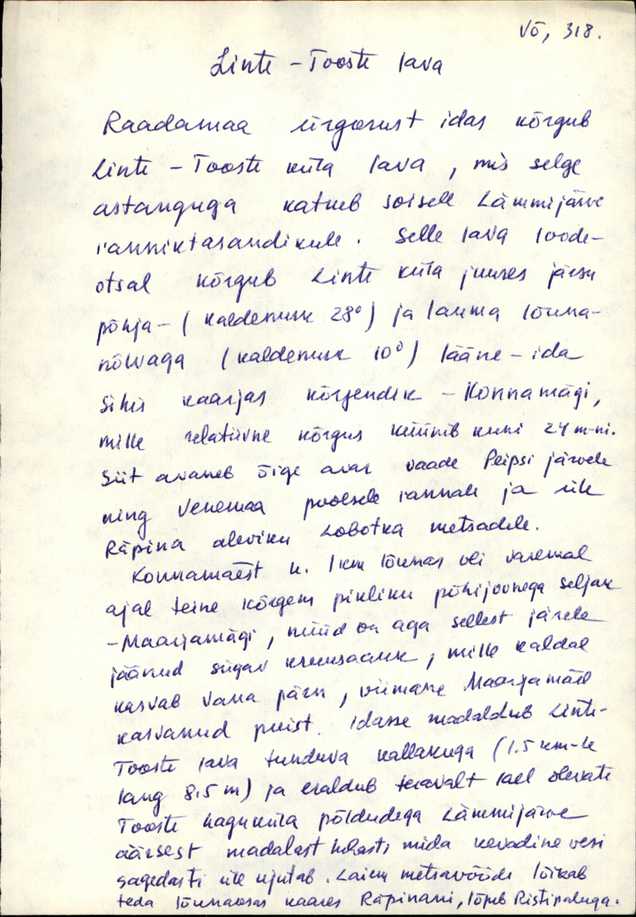 Võ, 318.
Linte - Tooste lava
Raadamaa ürgorust idas kõrgub
Linte - Tooste küla lava, mis selge
astanguga katkeb soisele Lämmijärve
ranniktasandikule. Selle lava loode-
otsal kõrgub Linte küla juures järsu
põhja- (kaldenurk 28°) ja lauma lõuna-
nõlvaga (kaldenurk 10°) lääne - ida
sihis kaarjas kõrgendik - Konnamägi,
mille relatiivne kõrgus küünib kuni 24 m-ni.
Siit avaneb õige avar vaade Peipsi järvele
ning Venemaa poolsele rannale ja üle
Räpina aleviku Lobotka metsadele.
Konnamäest u. 1 km lõunas oli varemal
ajal teine kõrgem pikliku põhijoonega seljak
- Maarjamägi, nüüd on aga sellest järele
jäänud sügav kruusaauk, mille kaldal
kasvab vana pärn, viimane Maarjamäel
kasvanud puist. Idasse madaldub Linte-
Tooste lava tunduva kallakuga (1.5 km-le
lang 8,5 m) ja eraldub teravalt sael olevate
Tooste hagukula põldudega Lämmijärve
äärsest madalast luhasti mida kevadine vesi
sagedasti üle ujutab. Laiem metsavööde lõikab
teda lõunaosas kaares Räpinani, lõpeb Ristipaluga.